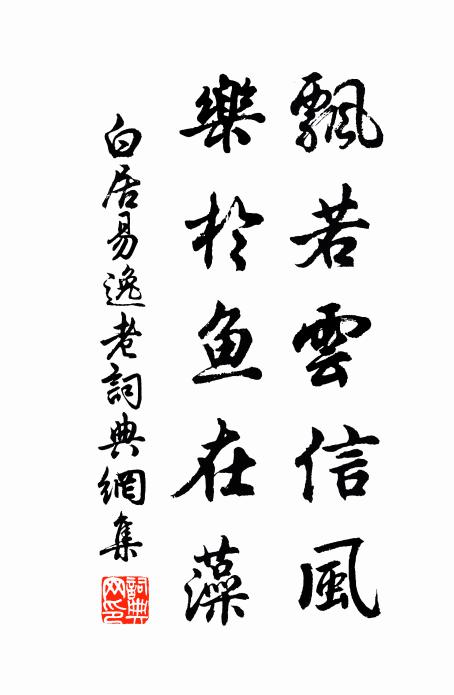 飄若雲信風
樂於鱼在藻
白居易逸老詞典網集
詞典网印